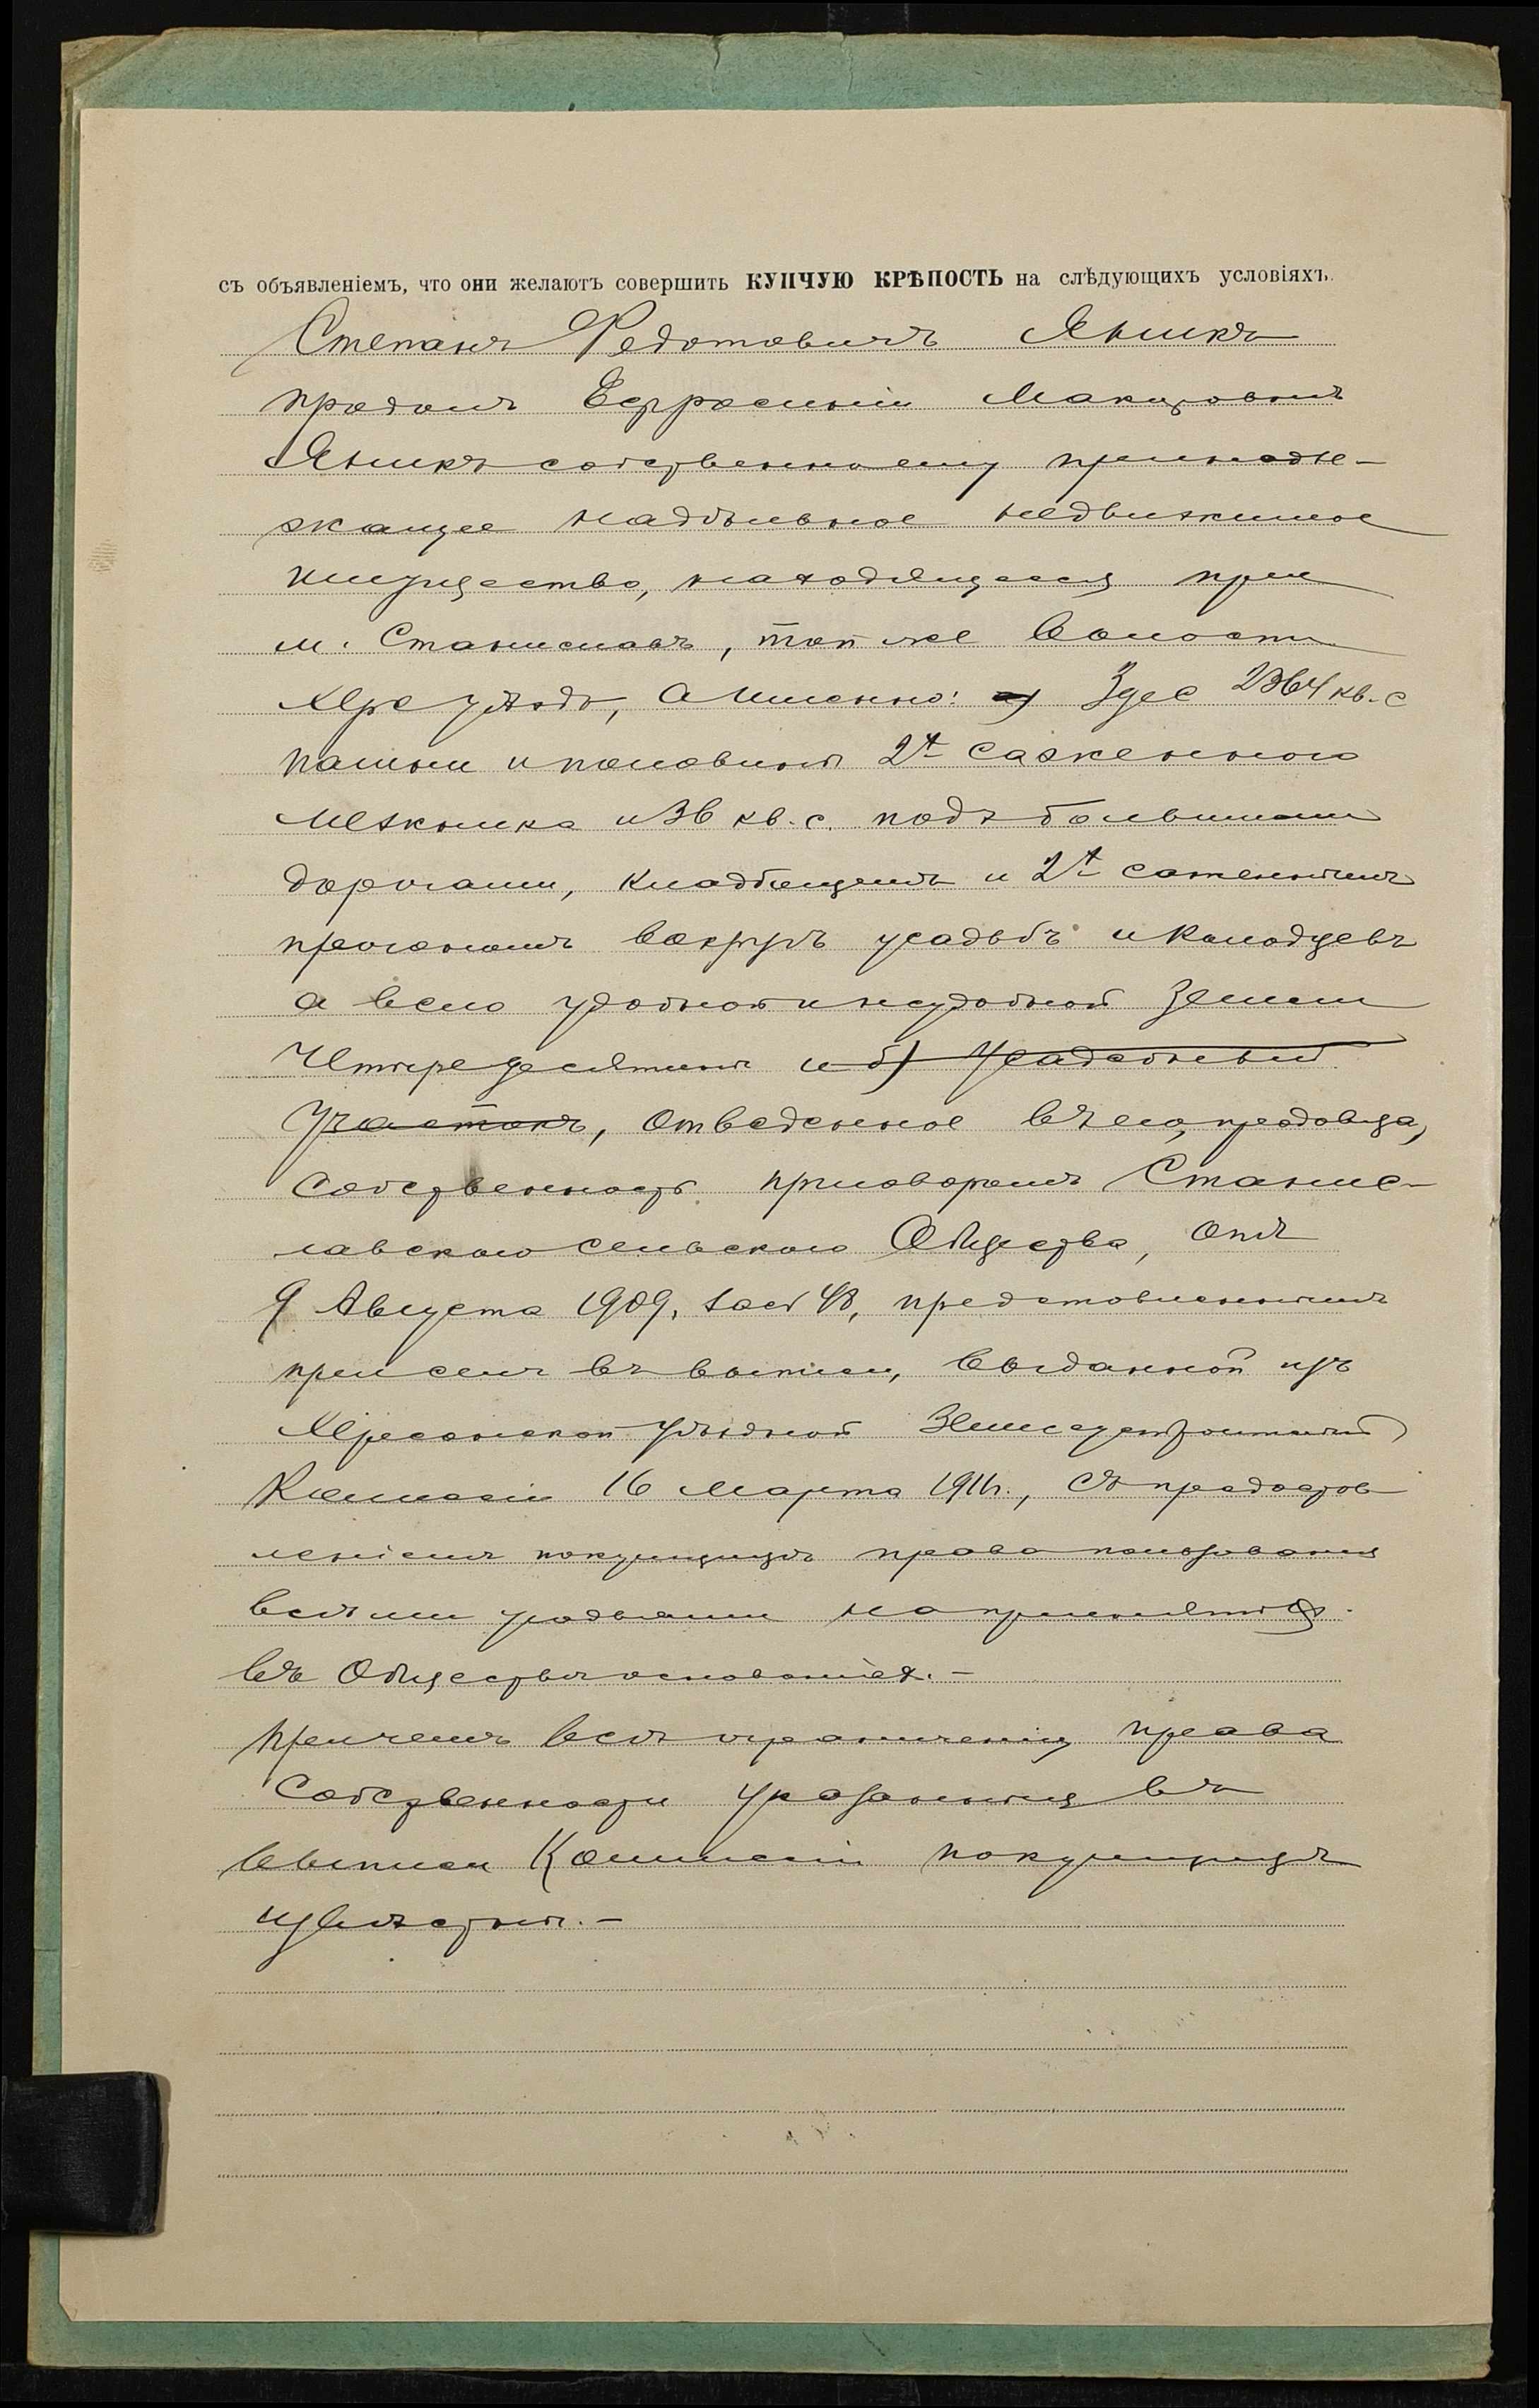 съ объявленіемъ, что они желаютъ совершить КУПЧУЮ КРѢПОСТЬ на слѣдующихъ условіяхъ.
Степанъ Федотовичъ Яникъ
продалъ Ефросиніи Макаровнѣ
Яникъ собственно ему принадле-
жащее надѣльное недвижимое
имущество, находящееся при
м. Станиславѣ, той же волости
Хер. уѣзда, а именно: а) 3 дес 2364 кв. с
пашни и половины 2х саженнаго
межника и 36 кв. с. подъ большими
дорогами, кладбищемъ и 2х саженнымъ
прогономъ вокругъ усадьбъ и колодцевъ
а всего удобной и неудобной земли
Четыре десятины и б) Усадебный
Участокъ, отведенное въ его, продавца,
собственность приговоромъ Станис-
лавскаго сельскаго Общества, отъ
9 Августа 1909, за № 48, представленнымъ
при семъ въ выписи, выданной изъ
Херсонской Уѣздной Землеустроительной
Комиссіи 16 Марта 1911 г., съ предостав
леніемъ покупщицѣ права пользованія
всѣми угодьями на принятыхъ
въ Обществѣ основаніях. —
причемъ всѣ ограниченія права
Собственности указанныя въ
выписи Комиссіи покупщицѣ
извѣстны. —